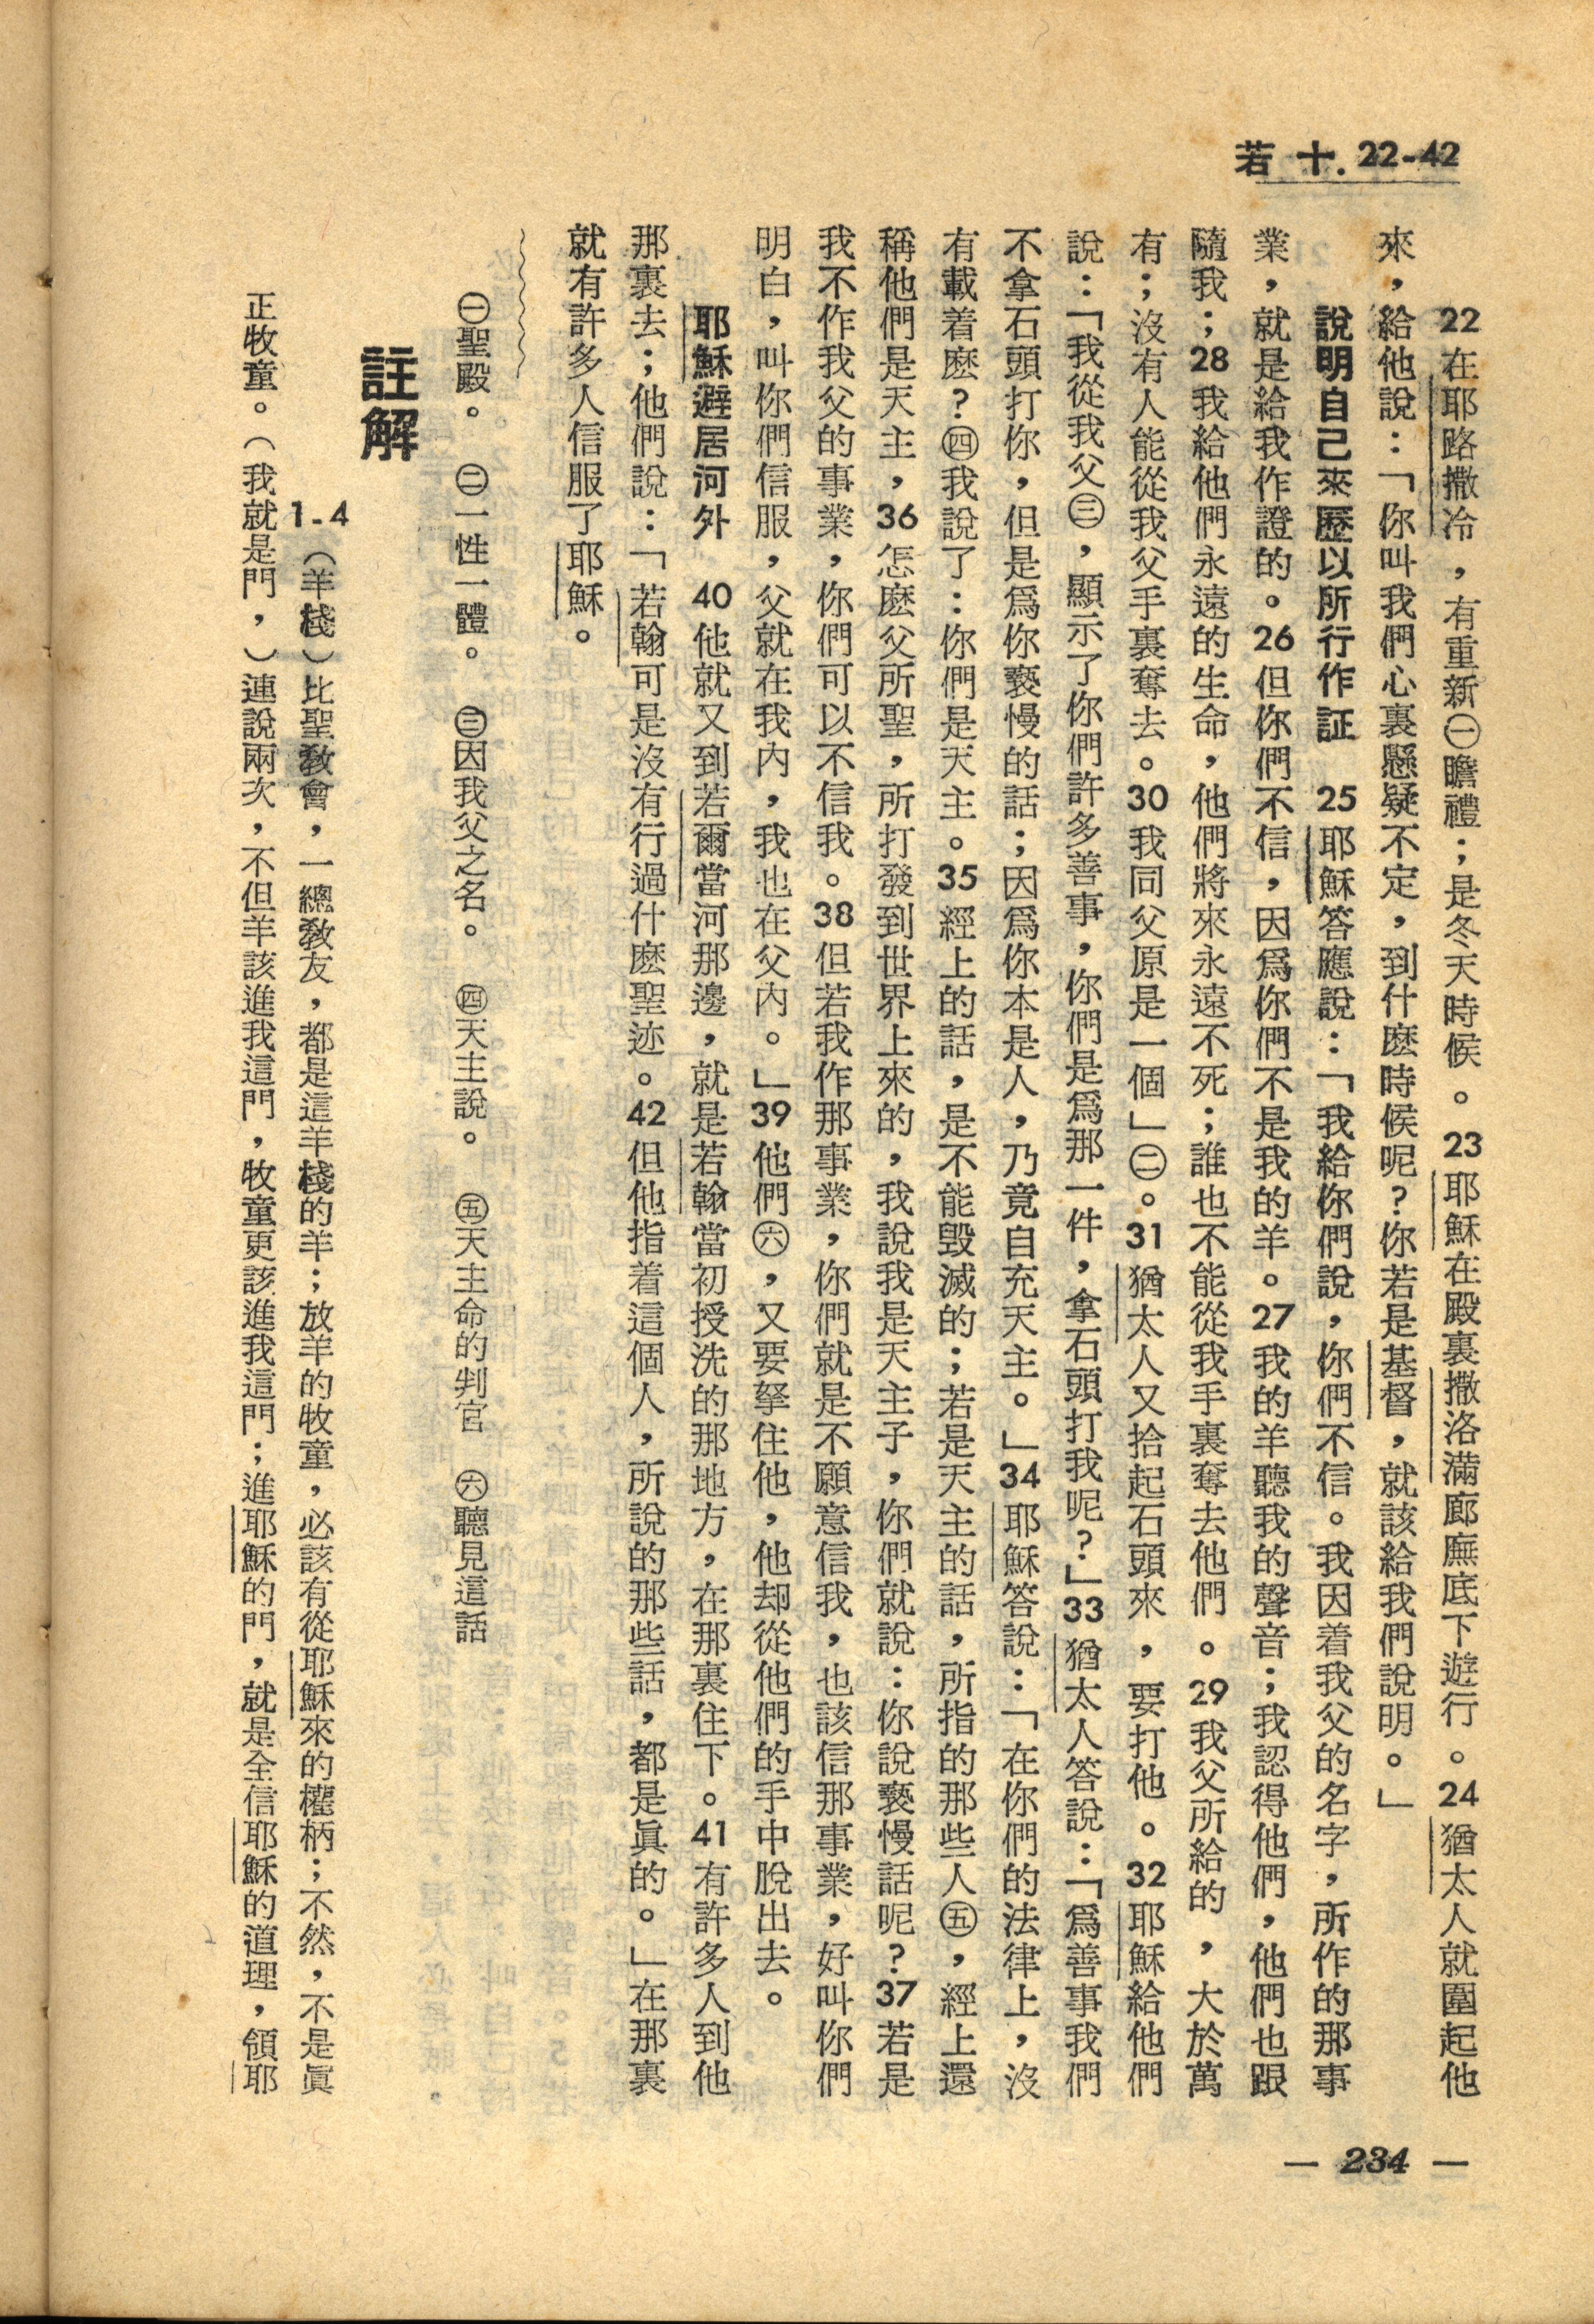 若 十. 22-42
22 在耶路撒冷，有重新㊀瞻禮；是冬天時候。23 耶穌在殿裏撒洛滿廊廡底下遊行。24 猶太人就圍起他
來，給他說：「你叫我們心裏懸疑不定，到什麽時候呢？你若是基督，就該給我們說明。」
說明自己來歷以所行作証　25 耶穌答應說：「我給你們說，你們不信。我因着我父的名字，所作的那事
業，就是給我作證的。26 但你們不信，因爲你們不是我的羊。27 我的羊聽我的聲音；我認得他們，他們也跟
隨我；28 我給他們永遠的生命，他們將來永遠不死；誰也不能從我手裏奪去他們。29 我父所給的，大於萬
有；沒有人能從我父手裏奪去。30 我同父原是一個」㊁。31 猶太人又拾起石頭來，要打他。32 耶穌給他們
說：「我從我父㊂，顯示了你們許多善事，你們是爲那一件，拿石頭打我呢？」33 猶太人答說：「爲善事我們
不拿石頭打你，但是爲你褻慢的話；因爲你本是人，乃竟自充天主。」34 耶穌答說：「在你們的法律上，沒
有載着麽？㊃我說了：你們是天主。35 經上的話，是不能毀滅的；若是天主的話，所指的那些人㊄，經上還
稱他們是天主，36 怎麽父所聖，所打發到世界上來的，我說我是天主子，你們就說：你說褻慢話呢？37 若是
我不作我父的事業，你們可以不信我。38 但若我作那事業，你們就是不願意信我，也該信那事業，好叫你們
明白，叫你們信服，父就在我內，我也在父內。」39 他們㊅，又要拏住他，他却從他們的手中脫出去。
耶穌避居河外　40 他就又到若爾當河那邊，就是若翰當初授洗的那地方，在那裏住下。41 有許多人到他
那裏去；他們說：「若翰可是沒有行過什麽聖迹。42 但他指着這個人，所說的那些話，都是眞的。」在那裏
就有許多人信服了耶穌。
㊀聖殿。　㊁一性一體。　㊂因我父之名。　㊃天主說。　㊄天主命的判官　㊅聽見這話
註解
1-4（羊棧）比聖教會，一總教友，都是這羊棧的羊；放羊的牧童，必該有從耶穌來的權柄；不然，不是眞
正牧童。（我就是門，）連說兩次，不但羊該進我這門，牧童更該進我這門；進耶穌的門，就是全信耶穌的道理，領耶
— 234 —